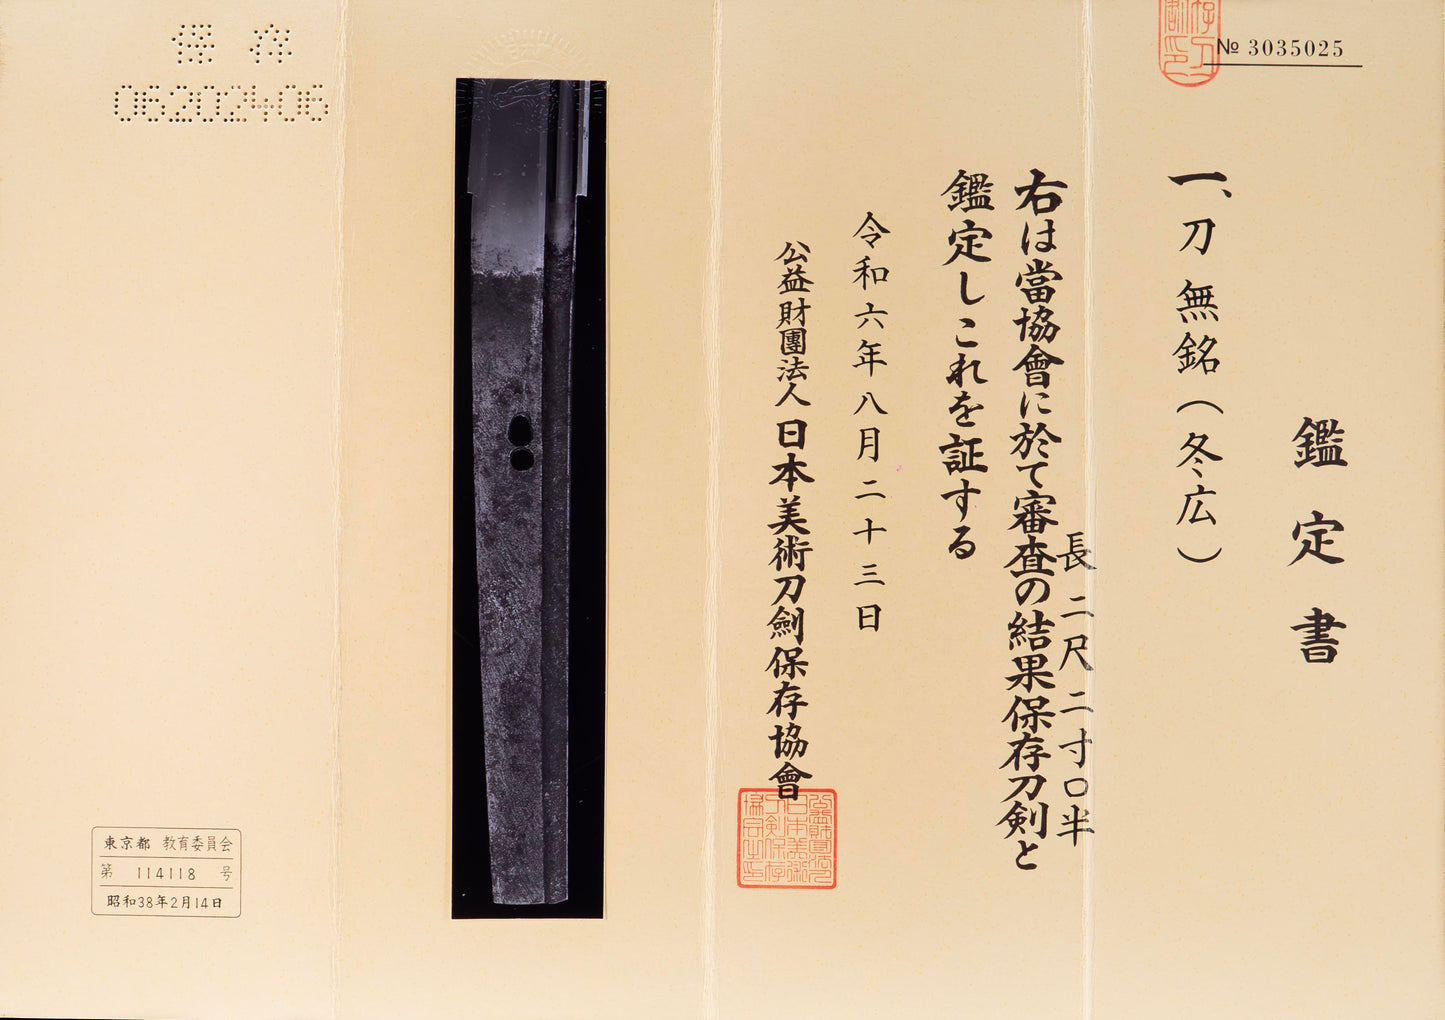 № 3035025
鑑定書
一、刀 無銘(冬広)
長二尺二寸〇半
右は當協會に於て審査の結果保存刀剣と
鑑定しこれを証する
令和六年八月二十三日
公益財團法人 日本美術刀劍保存協會
保存
06202406
東京都 教育委員会
第 114118 号
昭和38年2月14日